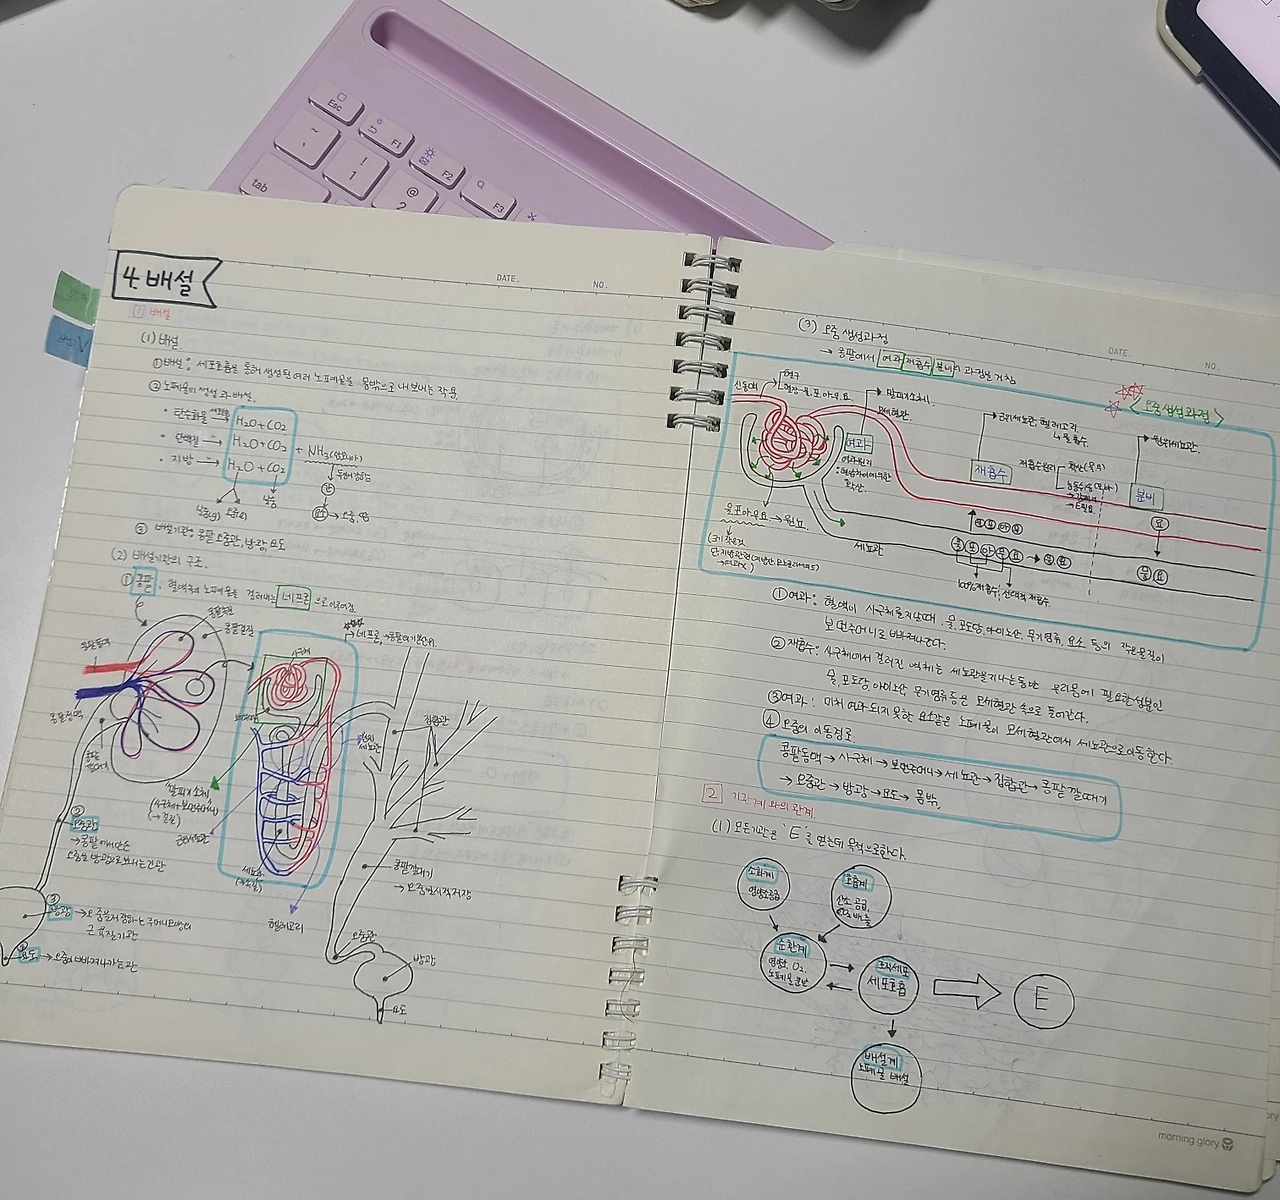 Esc
F1
F2
F3
tab
~
!
1
@
2
DATE.
NO.
4. 배설
1 배설
(1) 배설
① 배설 : 세포호흡을 통해 생성된 여러 노폐물을 몸밖으로 내보내는 작용.
② 노폐물의 생성과 배설.
• 탄수화물 → H₂O+CO₂
• 단백질 → H₂O+CO₂ + NH₃(암모니아)
• 지방 → H₂O+CO₂
날숨
간
→ 오줌, 땀
③ 배설기관: 콩팥 오줌관, 방광, 요도
(2) 배설기관의 구조.
① 콩팥. 혈액속의 노폐물을 걸러내는 네프론으로 이루어짐.
콩팥속질
콩팥겉질
콩팥동맥
콩팥정맥
사구체
집합관
세뇨관
말피기소체
(사구체+보먼주머니)
② 오줌관
→ 콩팥에서 만든
오줌을 방광으로 보내는 긴관
③ 방광 → 오줌을 저장하는 주머니모양의
근육질기관
④ 요도 → 오줌이 빠져나가는 관
헨레고리
콩팥깔대기
→ 오줌 임시적 저장
오줌관
방광
요도
DATE.
NO.
(3) 오줌 생성과정
→ 콩팥에서 여과 재흡수 분비의 과정을 거침.
<오줌생성과정>
혈구
말피기소체.
모세혈관.
여과
여과원리
재흡수
재흡수원리
확산(물 등)
분비
원위세뇨관.
세뇨관
100%재흡수
선택적 재흡수
① 여과 : 혈액이 사구체를 지날때, 물, 포도당, 아미노산, 무기염류, 요소 등의 작은물질이
보먼주머니로 빠져나간다.
② 재흡수: 사구체에서 걸러진 여과액는 세뇨관을 지나는동안 우리몸에 필요한 성분인
물, 포도당, 아미노산, 무기염류등은 모세혈관 속으로 들어간다.
③ 여과 : 미처 여과되지 못한 요소같은 노폐물이 모세혈관에서 세뇨관으로 이동한다.
④ 오줌의 이동경로
콩팥동맥 → 사구체 → 보먼주머니 → 세뇨관 → 집합관 → 콩팥 깔때기
→ 오줌관 → 방광 → 요도 → 몸밖.
2 기관계와의 관계.
(1) 모든기관은 'E'를 얻는데 목적으로한다.
소화계
영양소공급
호흡계
산소 공급,
CO₂ 배출
순환계
영양, O₂,
노폐물 운반
조직세포
세포호흡
E
배설계
노폐물 배설
morning glory